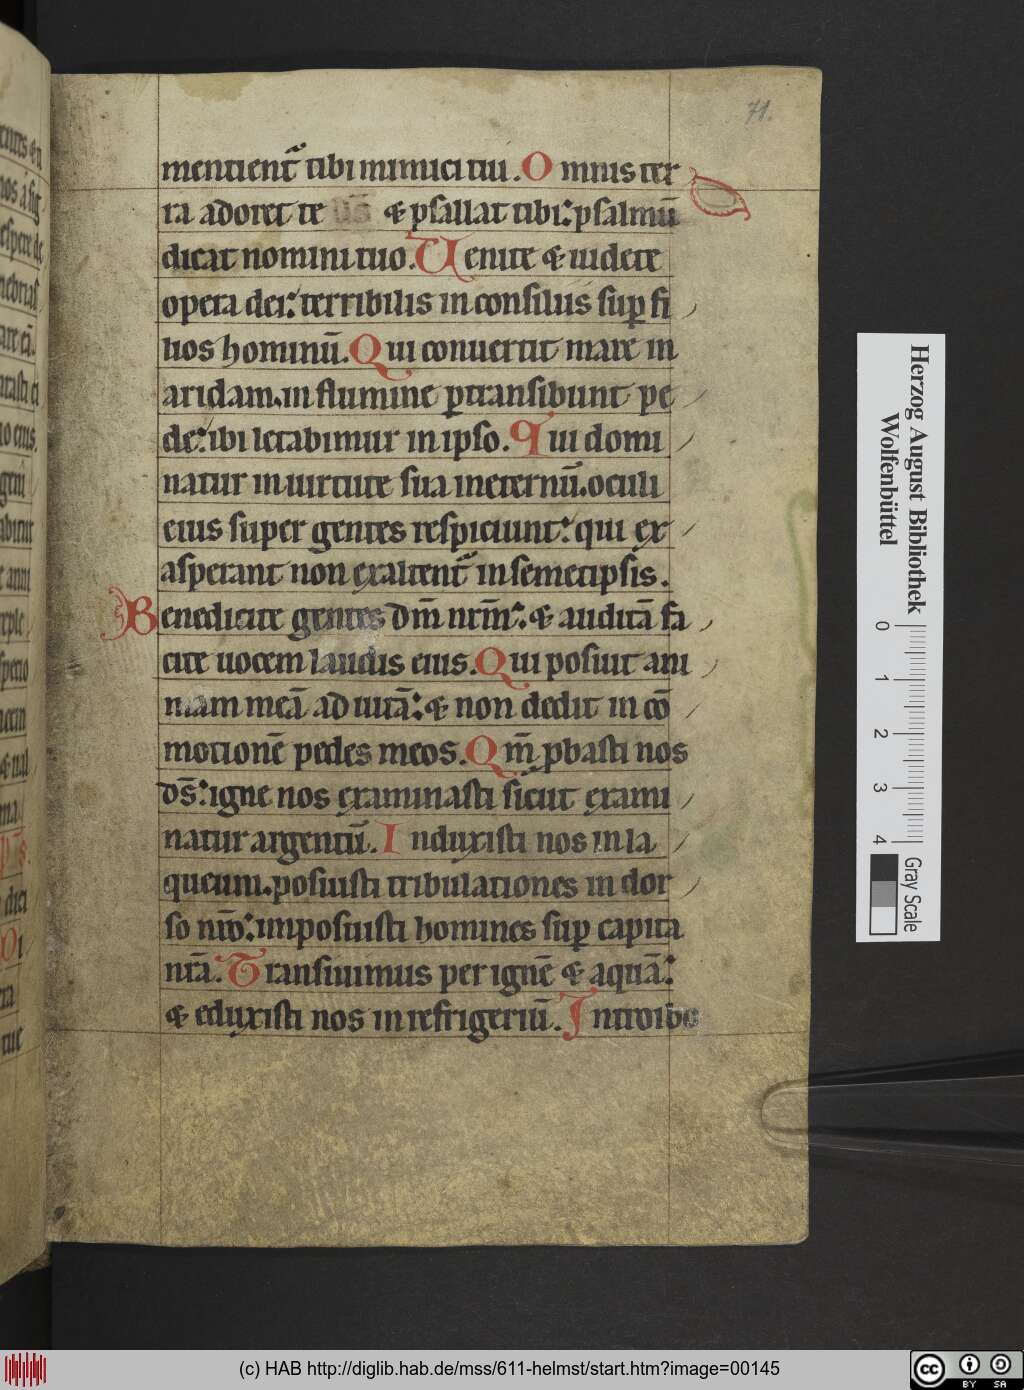 71.
mentient᷑ tibi inimici tui. Omnis ter
ra adoret te & psallat tibi: psalmū
dicat nomini tuo. Uenite & uidete
opera dei: terribilis in consiliis sup̱ fi
lios hominū. Qui conuertit mare in
aridam. in flumine ꝑtransibunt pe
de: ibi letabimur in ipso. Qui domi
natur in uirtute sua in eternū. oculi
eius super gentes respiciunt: qui ex
asperant non exaltent᷑ in semetipsis.
Benedicite gentes dm̄ nrm̄: & auditā fa
cite uocem laudis eius. Qui posuit ani
mam meā ad uitā: & non dedit in cō
motionē pedes meos. Qm̄ ꝓbasti nos
ds̄: igne nos examinasti sicut exami
natur argentū. Induxisti nos in la
queum. posuisti tribulationes in dor
so nr̄o: imposuisti homines sup̱ capita
nrā. Transiuimus per ignē & aquā:
& eduxisti nos in refrigeriū. Introibo
Herzog August Bibliothek
Wolfenbüttel
0 1 2 3 4
Gray Scale
(c) HAB http://diglib.hab.de/mss/611-helmst/start.htm?image=00145
cc BY SA